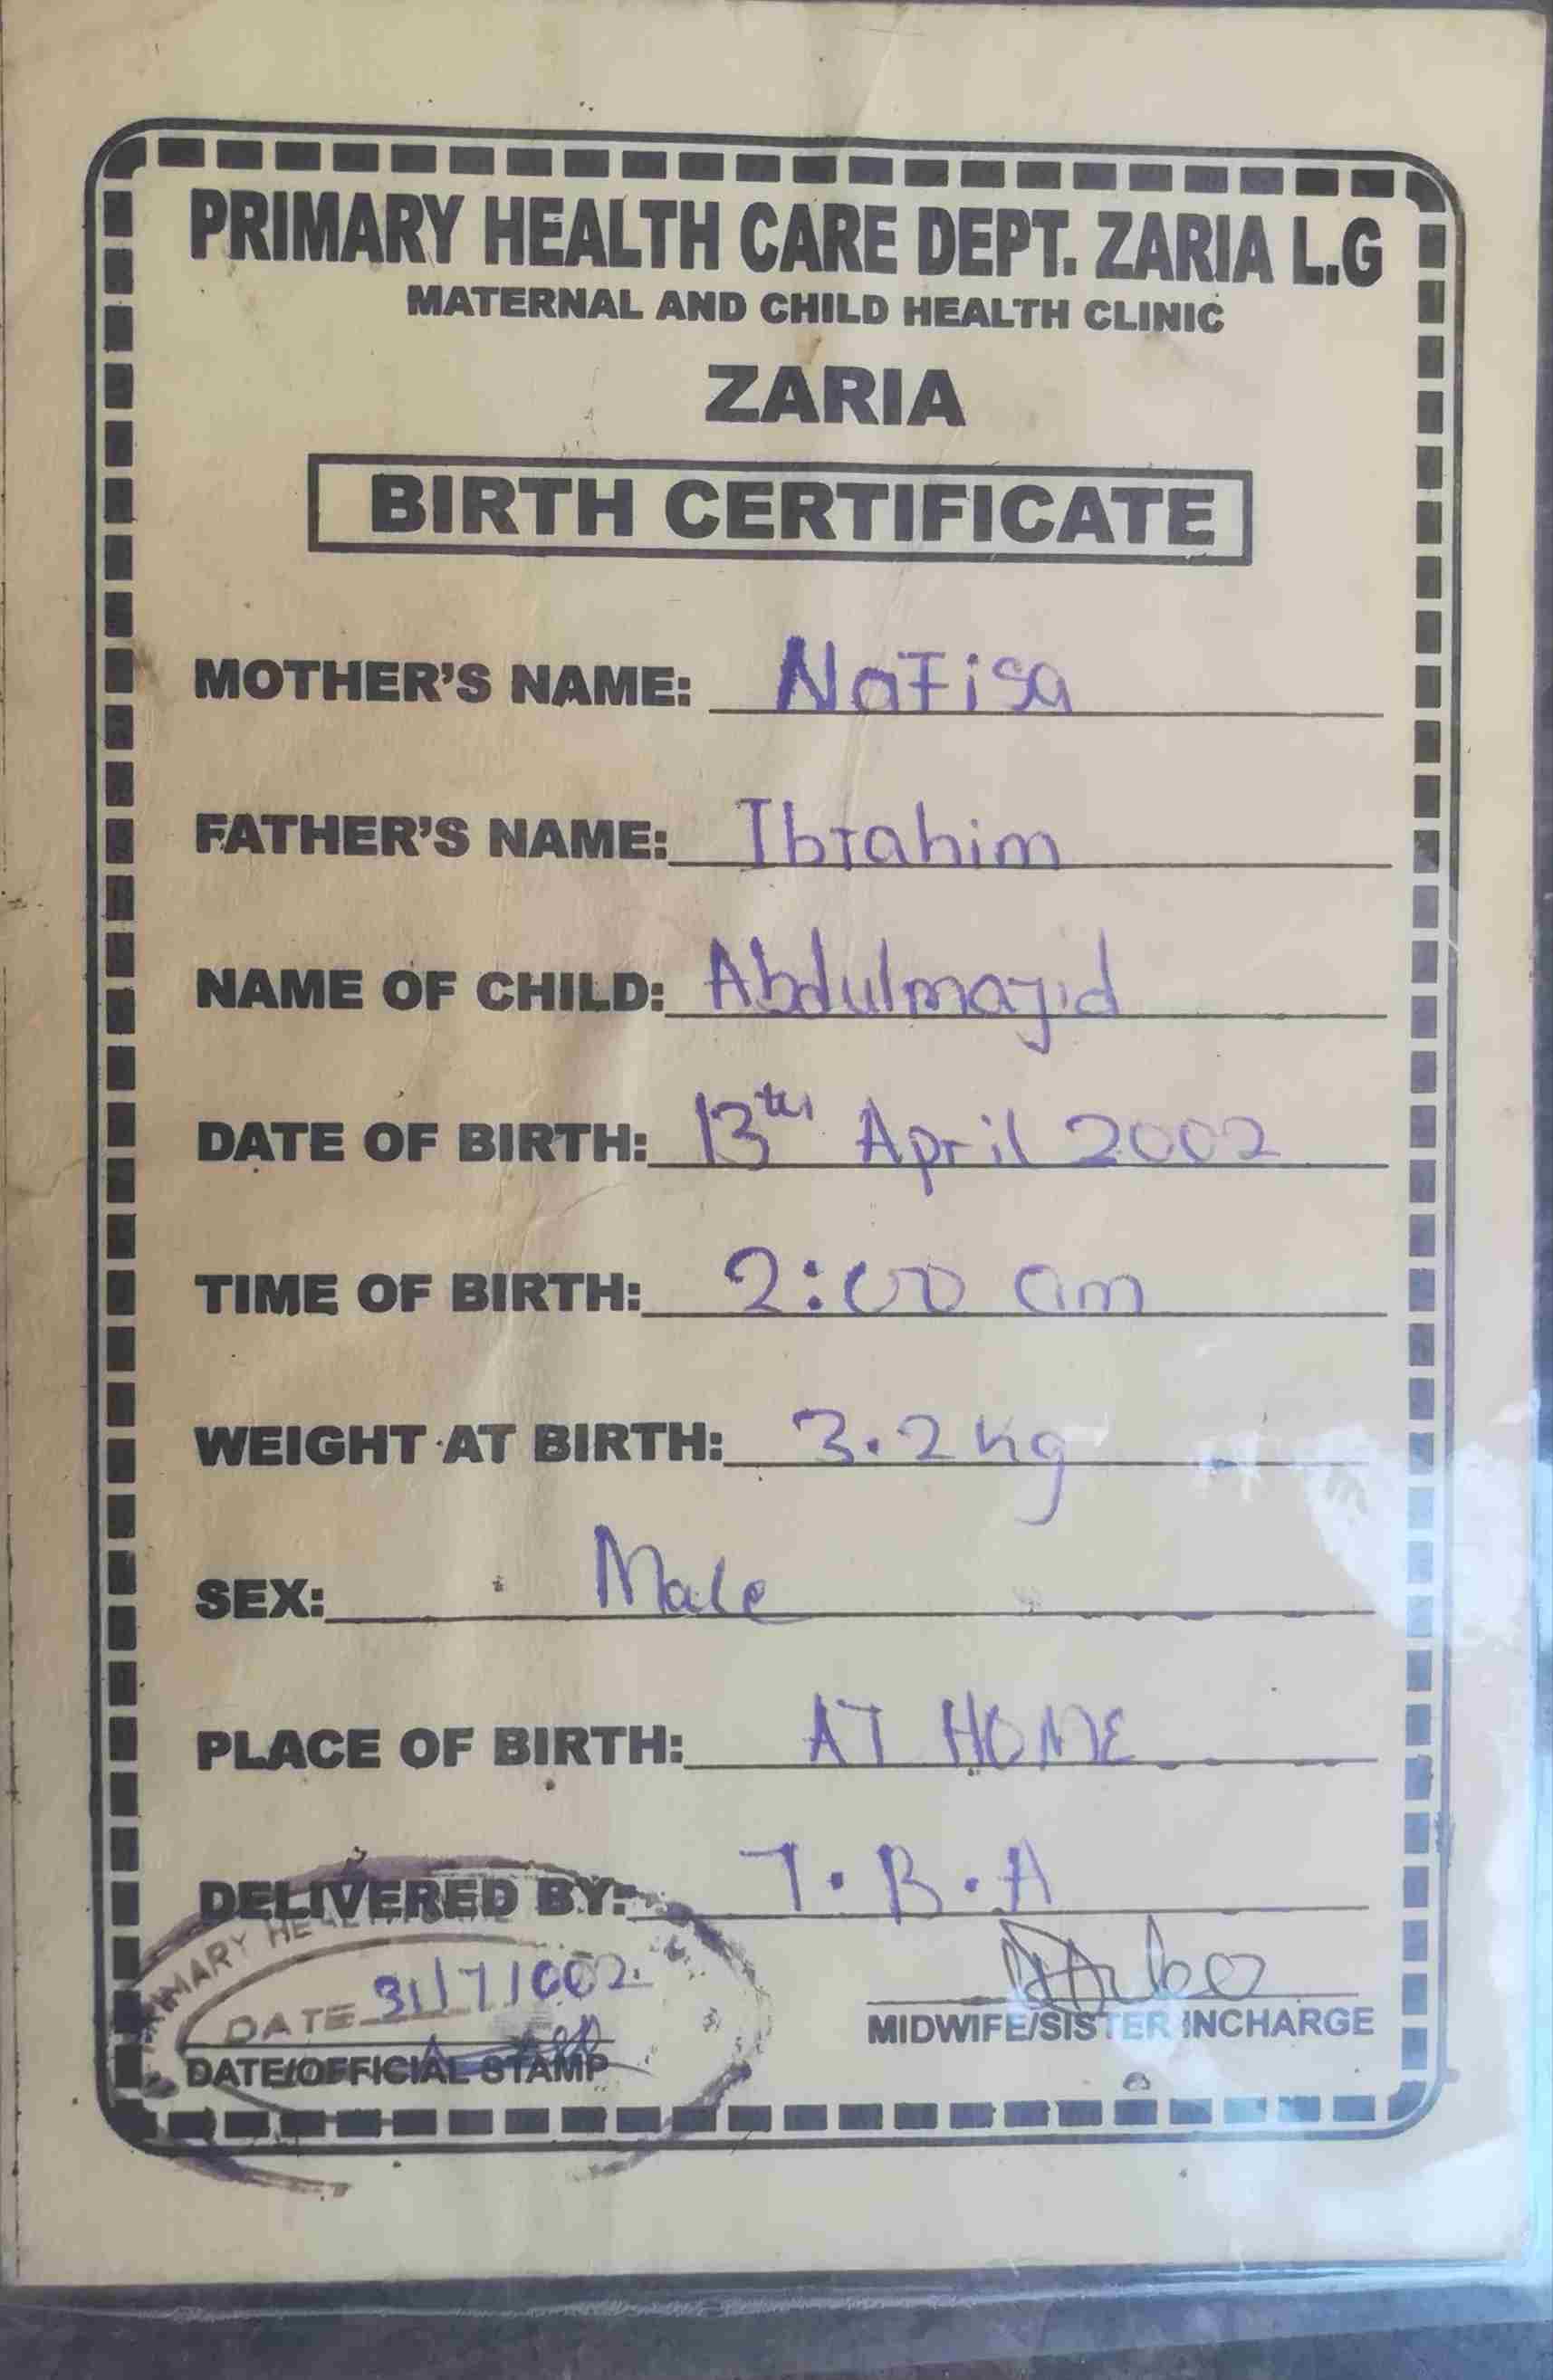 PRIMARY HEALTH CARE DEPT. ZARIA L.G
MATERNAL AND CHILD HEALTH CLINIC
ZARIA
BIRTH CERTIFICATE
MOTHER'S NAME: Nafisa
FATHER'S NAME: Ibrahim
NAME OF CHILD: Abdulmajid
DATE OF BIRTH: 13th April 2002
TIME OF BIRTH: 2:00 am
WEIGHT AT BIRTH: 3.2 kg
SEX: Male
PLACE OF BIRTH: AT HOME
DELIVERED BY: T.B.A
DATE
MIDWIFE/SISTER INCHARGE
DATE/OFFICIAL STAMP